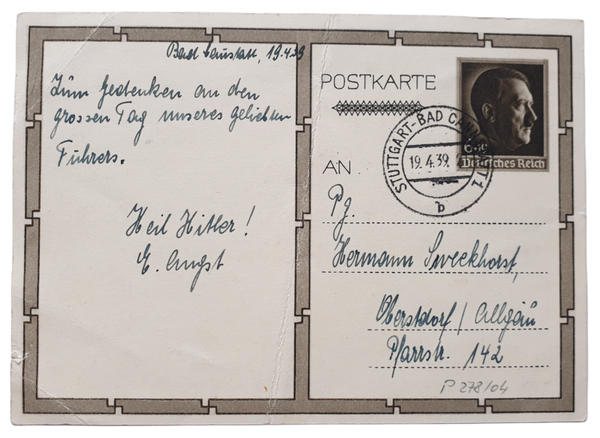 Bad Cannstatt, 19.4.39
Zum Gedenken an den
grossen Tag unseres geliebten
Führers.
Heil Hitler!
E. Angst
POSTKARTE
6+19
Deutsches Reich
STUTTGART-BAD CANNSTATT 1
19.4.39.
b
AN
Pg.
Hermann
Oberstdorf / Allgäu
Pfarrstr. 142
P 278/04